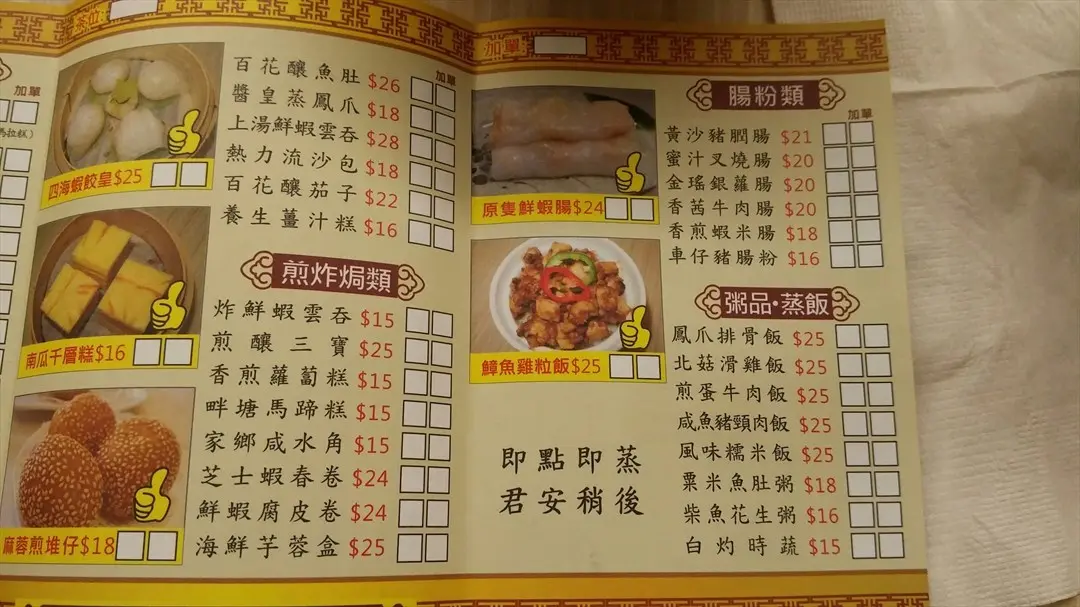 茶位:
加單:
加單
馬拉糕)
四海蝦餃皇$25
南瓜千層糕$16
麻蓉煎堆仔$18
加單
百花釀魚肚 $26
醬皇蒸鳳爪 $18
上湯鮮蝦雲吞 $28
熱力流沙包 $18
百花釀茄子 $22
養生薑汁糕 $16
煎炸焗類
炸鮮蝦雲吞 $15
煎釀三寶 $25
香煎蘿蔔糕 $15
畔塘馬蹄糕 $15
家鄉咸水角 $15
芝士蝦春卷 $24
鮮蝦腐皮卷 $24
海鮮芋蓉盒 $25
原隻鮮蝦腸$24
鱆魚雞粒飯$25
即點即蒸
君安稍後
腸粉類
加單
黃沙豬膶腸 $21
蜜汁叉燒腸 $20
金瑤銀蘿腸 $20
香茜牛肉腸 $20
香煎蝦米腸 $18
車仔豬腸粉 $16
粥品·蒸飯
鳳爪排骨飯 $25
北菇滑雞飯 $25
煎蛋牛肉飯 $25
咸魚豬頸肉飯 $25
風味糯米飯 $25
粟米魚肚粥 $18
柴魚花生粥 $16
白灼時蔬 $15